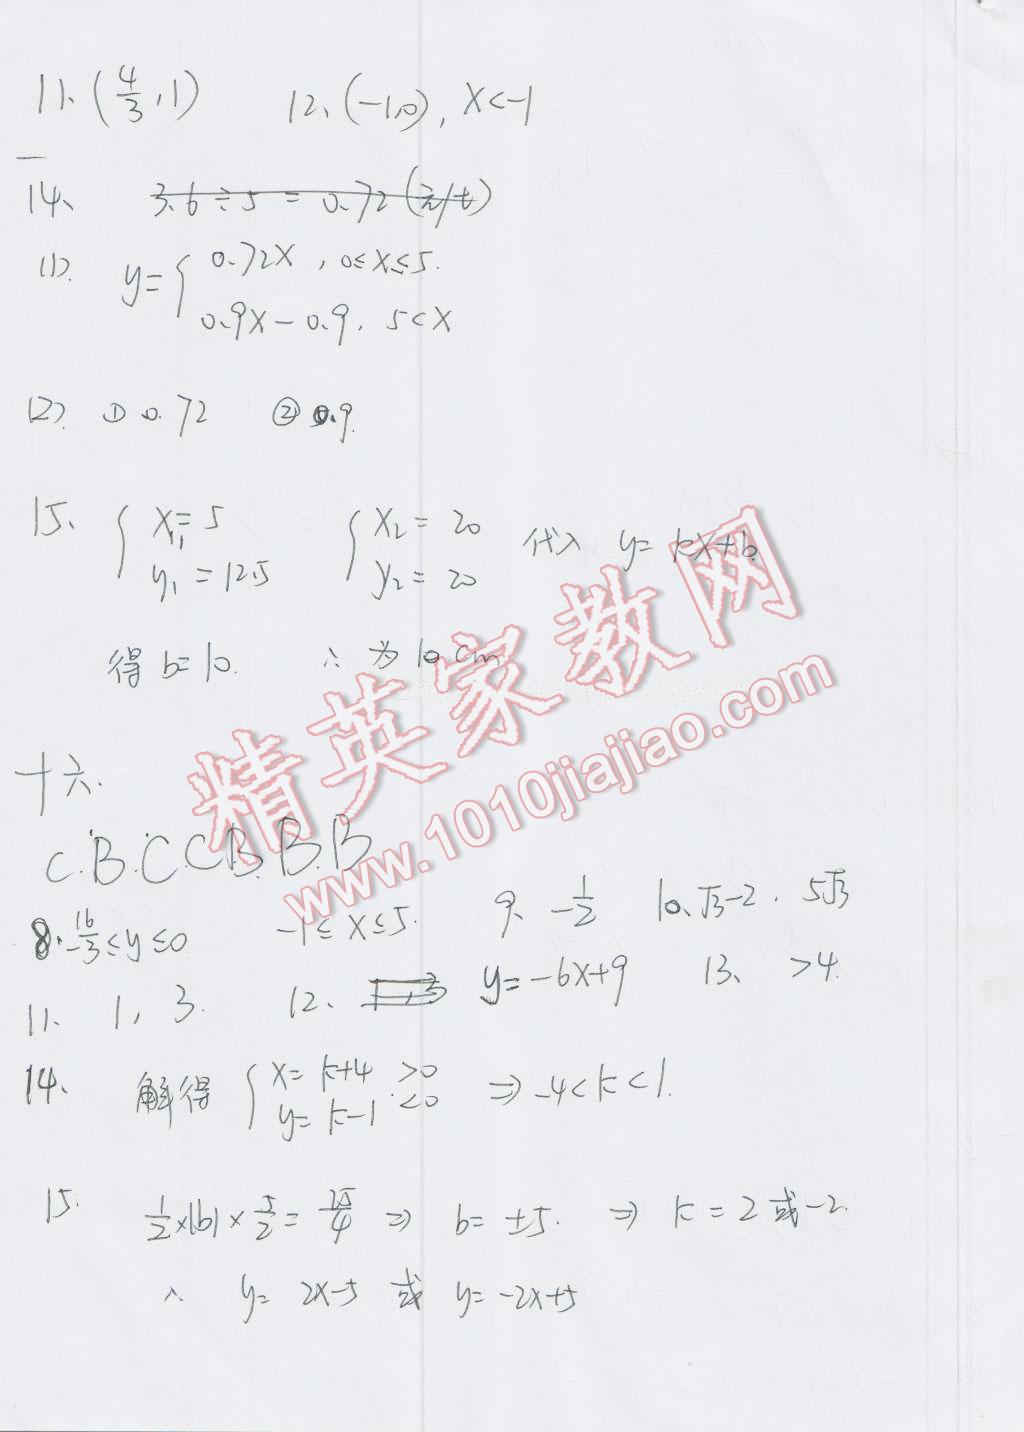 11、(4/3, 1)  12、(-1,0), x<-1
14、 3.6÷5=0.72(元/t)
(1) y={ 0.72x, 0≤x≤5.
0.9x-0.9, 5<x
(2) ① 0.72 ② 0.9.
15、 { x₁=5 { x₂=20 代入 y=kx+b.
y₁=12.5 y₂=20
得 b=10. ∴ 为10cm
精英家教网
www.1010jiajiao.com
十六.
C.B.C.C.B.B.B
8. -16/3≤y≤0 -1≤x≤5. 9、-1/2 10、√3-2. 5√3
11、 1, 3. 12、 y=-6x+9 13、 >4.
14、 解得 { x=k+4 >0 ⇒ -4<k<1.
y=k-1 <0
15. 1/2×|b|×5/2=25/4 ⇒ b=±5. ⇒ k=2或-2.
∴ y=2x-5 或 y=-2x+5